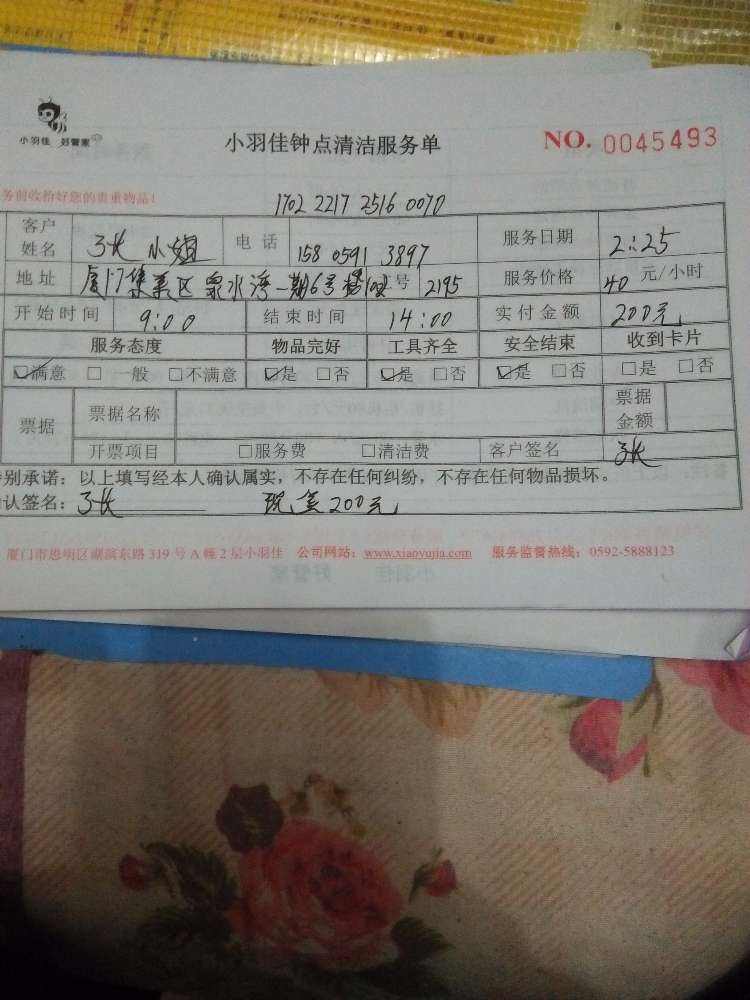 小羽佳 好管家
小羽佳钟点清洁服务单
NO. 0045493
务前收纷好您的贵重物品!
1702 2217 2516 0070
客户姓名 张小姐 电话 158 0591 3897 服务日期 2:25
地址 厦门集美区泉水湾一期6号楼 号 2195 服务价格 40 元/小时
开始时间 9:00 结束时间 14:00 实付金额 200元
服务态度 物品完好 工具齐全 安全结束 收到卡片
☑满意 □一般 □不满意 ☑是 □否 ☑是 □否 ☑是 □否 □是 □否
票据 票据名称 票据金额
开票项目 □服务费 □清洁费 客户签名 张
特别承诺:以上填写经本人确认属实,不存在任何纠纷,不存在任何物品损坏。
认签名:张 现金200元
厦门市思明区湖滨东路 319 号 A 幢 2 层小羽佳 公司网站:www.xiaoyujia.com 服务监督热线:0592-5888123